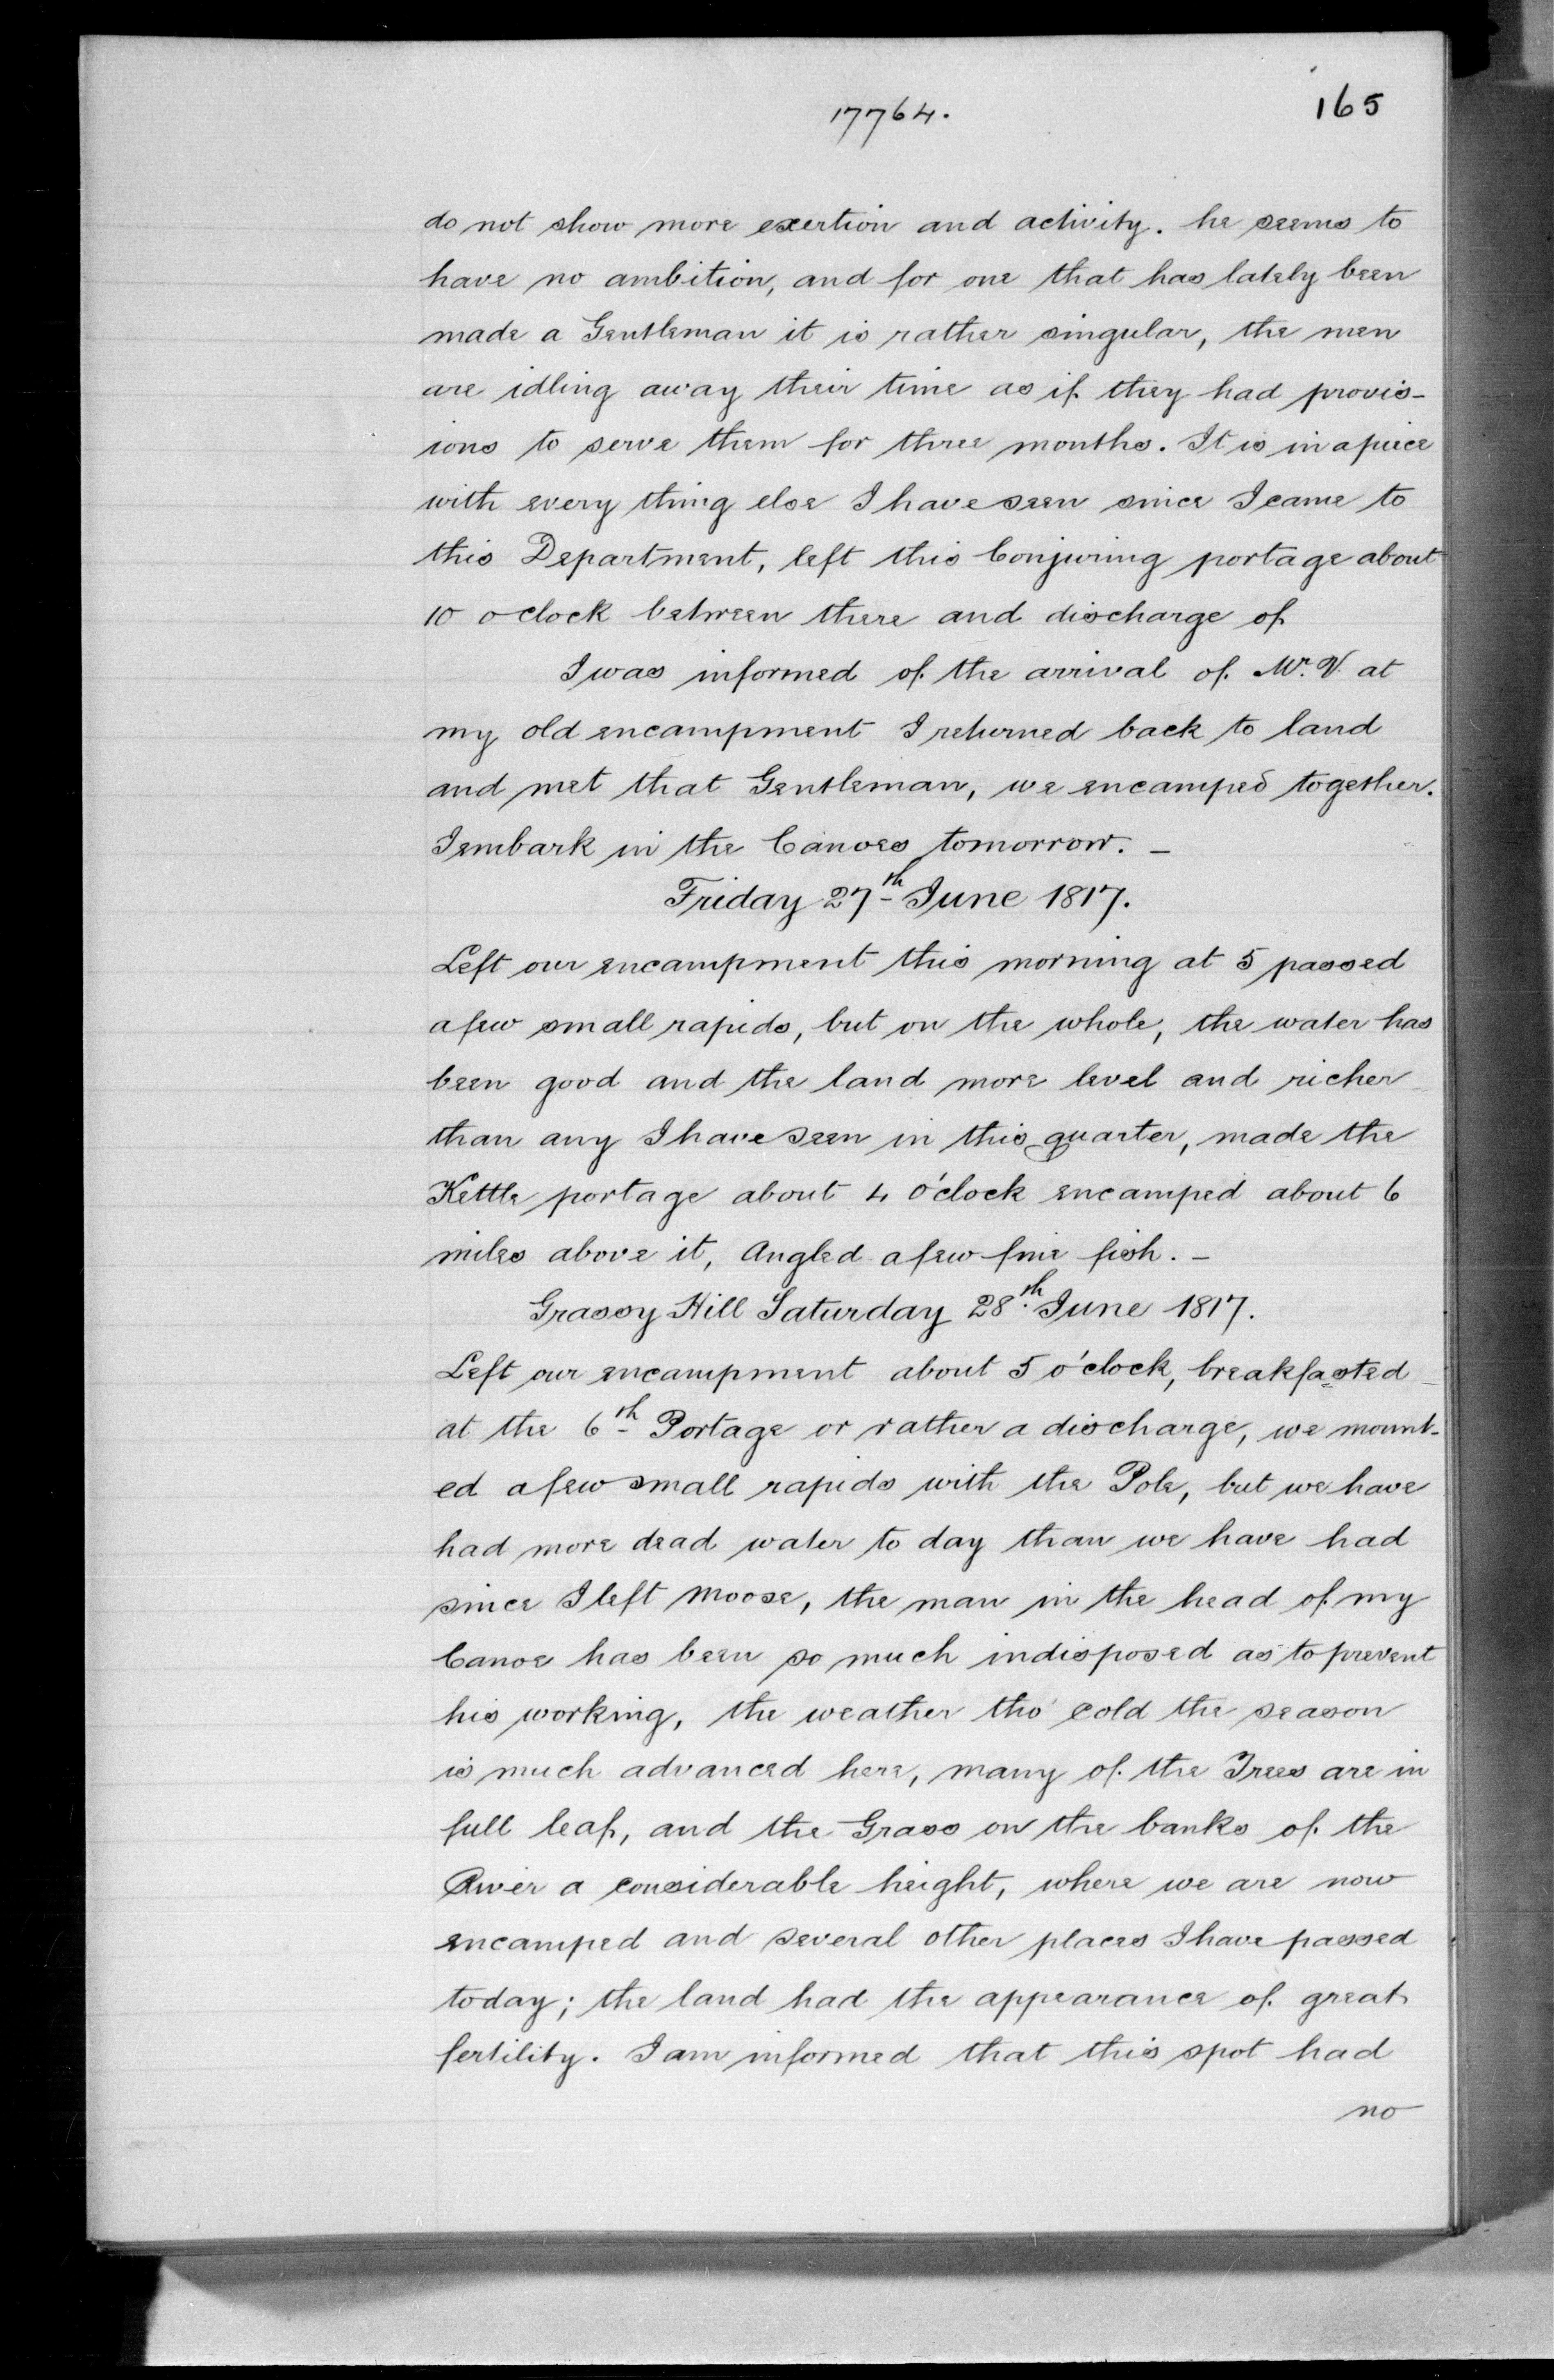 17764.
165
do not show more exertion and activity. he seems to
have no ambition, and for one that has lately been
made a Gentleman it is rather singular, the men
are idling away their time as if they had provis-
ions to serve them for three months. It is in a piece
with every thing else I have seen since I came to
this Department, left this Conjuring portage about
10 oclock between there and discharge of
I was informed of the arrival of Mr. V. at
my old encampment I returned back to land
and met that Gentleman, we encamped together.
I embark in the Canoes tomorrow. —
Friday 27th June 1817.
Left our encampment this morning at 5 passed
a few small rapids, but on the whole, the water has
been good and the land more level and richer
than any I have seen in this quarter, made the
Kettle portage about 4 o'clock encamped about 6
miles above it, Angled a few fine fish. —
Grassy Hill Saturday 28th. June 1817.
Left our encampment about 5 o'clock, breakfasted
at the 6th Portage or rather a discharge, we mount-
ed a few small rapids with the Pole, but we have
had more dead water to day than we have had
since I left Moose, the man in the head of my
Canoe has been so much indisposed as to prevent
his working, the weather tho' cold the season
is much advanced here, many of the Trees are in
full leaf, and the Grass on the banks of the
River a considerable height, where we are now
encamped and several other places I have passed
today; the land had the appearance of great
fertility. I am informed that this spot had
no